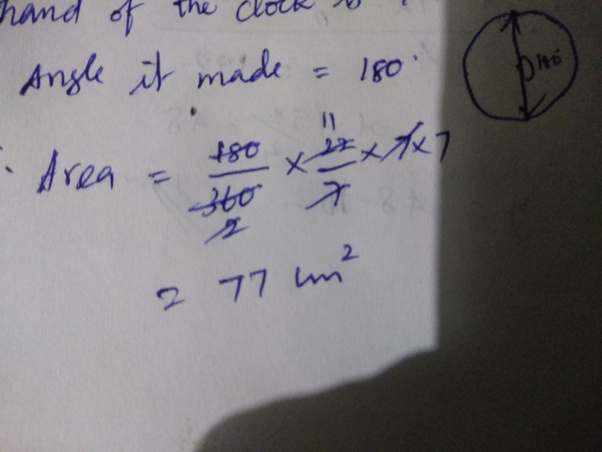 hand of the clock is
Angle it made = 180°
180
∴ Area = 180/360 × 22/7 × 7 × 7
11
2
= 77 cm²